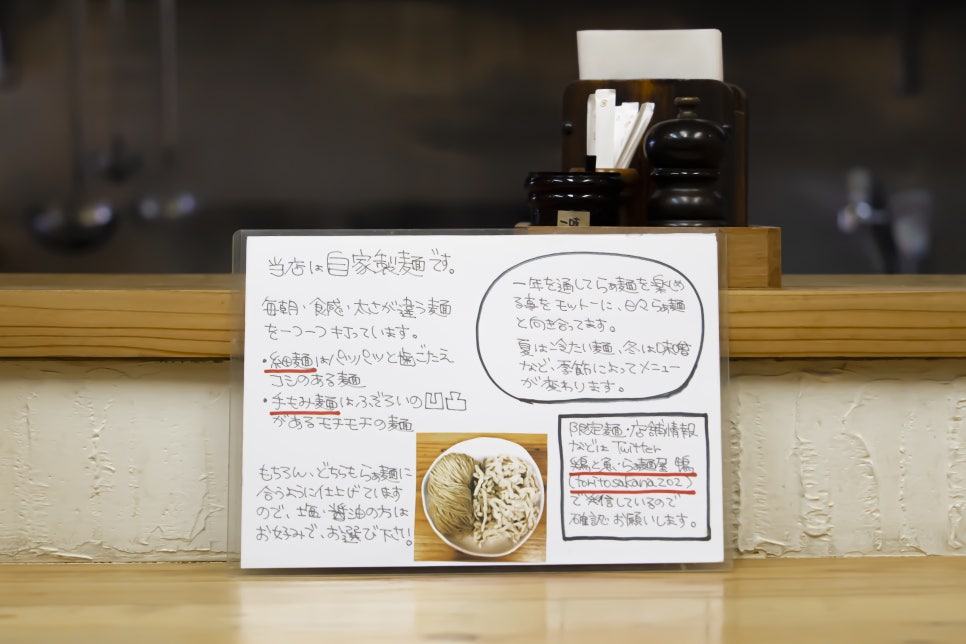 当店は自家製麺です。
毎朝・食感・太さが違う麺
を一つ一つ打っています。
・細麺はパッパッと歯ごたえ
コシのある麺
・手もみ麺はふぞろいの凹凸
があるモチモチの麺
もちろん、どちらもらぁ麺に
合うように仕上げています
ので、塩・醤油の方は
お好みで、お選び下さい。
一年を通してらぁ麺を楽しめ
る事をモットーに、日々らぁ麺
と向き合ってます。
夏は冷たい麺、冬は味噌
など、季節によってメニュー
が変わります。
限定麺・店舗情報
などは Twitter
鶏と魚・らぁ麺屋 鴨
(toritosakana202)
で発信しているので
確認お願いします。